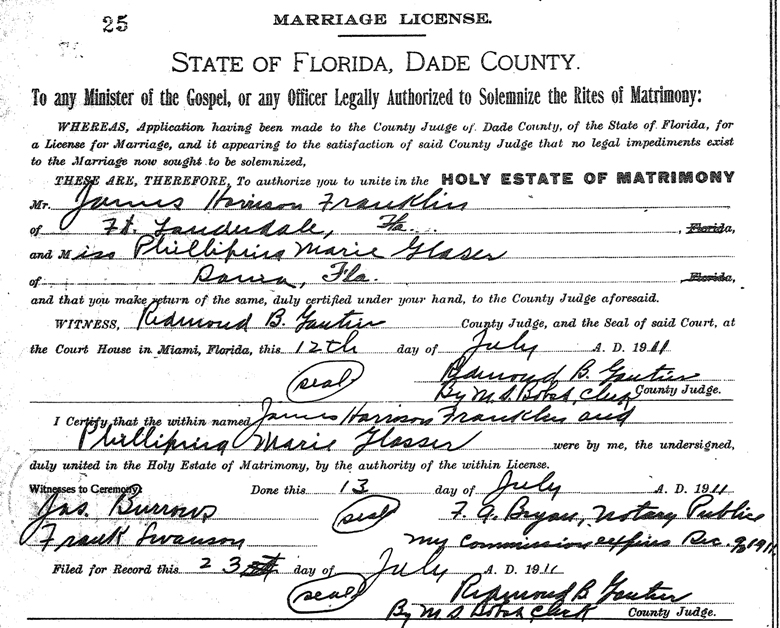 25
MARRIAGE LICENSE.
STATE OF FLORIDA, DADE COUNTY.
To any Minister of the Gospel, or any Officer Legally Authorized to Solemnize the Rites of Matrimony:
WHEREAS, Application having been made to the County Juage of Dade County, of the State of Florida, for
a License for Marriage, and it appearing to the satisfaction of said County Judge that no legal impediments exist
to the Marriage now sought to be solemnized,
THESE ARE, THEREFORE, To authorize you to unite in the HOLY ESTATE OF MATRIMONY
Mr. James Harrison Franklin
of Ft. Lauderdale, Fla. , Florida,
and Miss Phillipina Marie Glaser
of Dania, Fla. Florida,
and that you make return of the same, duly certified under your hand, to the County Judge aforesaid.
WITNESS, Redmond B. Gautier County Judge, and the Seal of said Court, at
the Court House in Miami, Florida, this 12th day of July A. D. 1911
seal Redmond B. Gautier
By M. S. Clerk County Judge.
I Certify that the within named James Harrison Franklin and
Phillipina Marie Glasser were by me, the undersigned,
duly united in the Holy Estate of Matrimony, by the authority of the within License.
Witnesses to Ceremony: Done this 13 day of July A. D. 1911
Jas. Burrows seal F. A. Bryan, Notary Public
Frank Swanson My Commission expires Dec. 1911
Filed for Record this 23 day of July A. D. 1911
seal Redmond B Gautier
By M. S. Clerk County Judge.